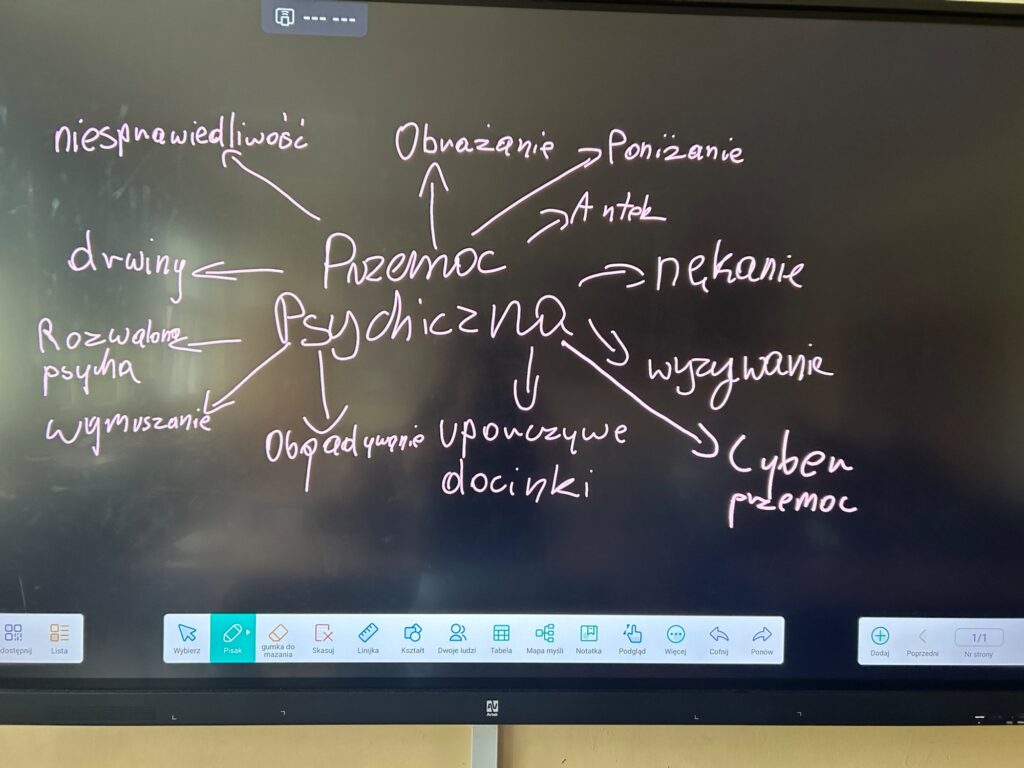 niesprawiedliwość
Obrażanie
Poniżanie
Antek
drwiny
Przemoc
Psychiczna
nękanie
Rozwalona
psycha
wyzywanie
wymuszanie
Obgadywanie
Uporczywe
docinki
Cyber
przemoc
dostępnij
Lista
Wybierz
Pisak
gumka do
mazania
Skasuj
Linijka
Kształt
Dwoje ludzi
Tabela
Mapa myśli
Notatka
Podgląd
Więcej
Cofnij
Ponów
Dodaj
Poprzedni
1/1
Nr strony